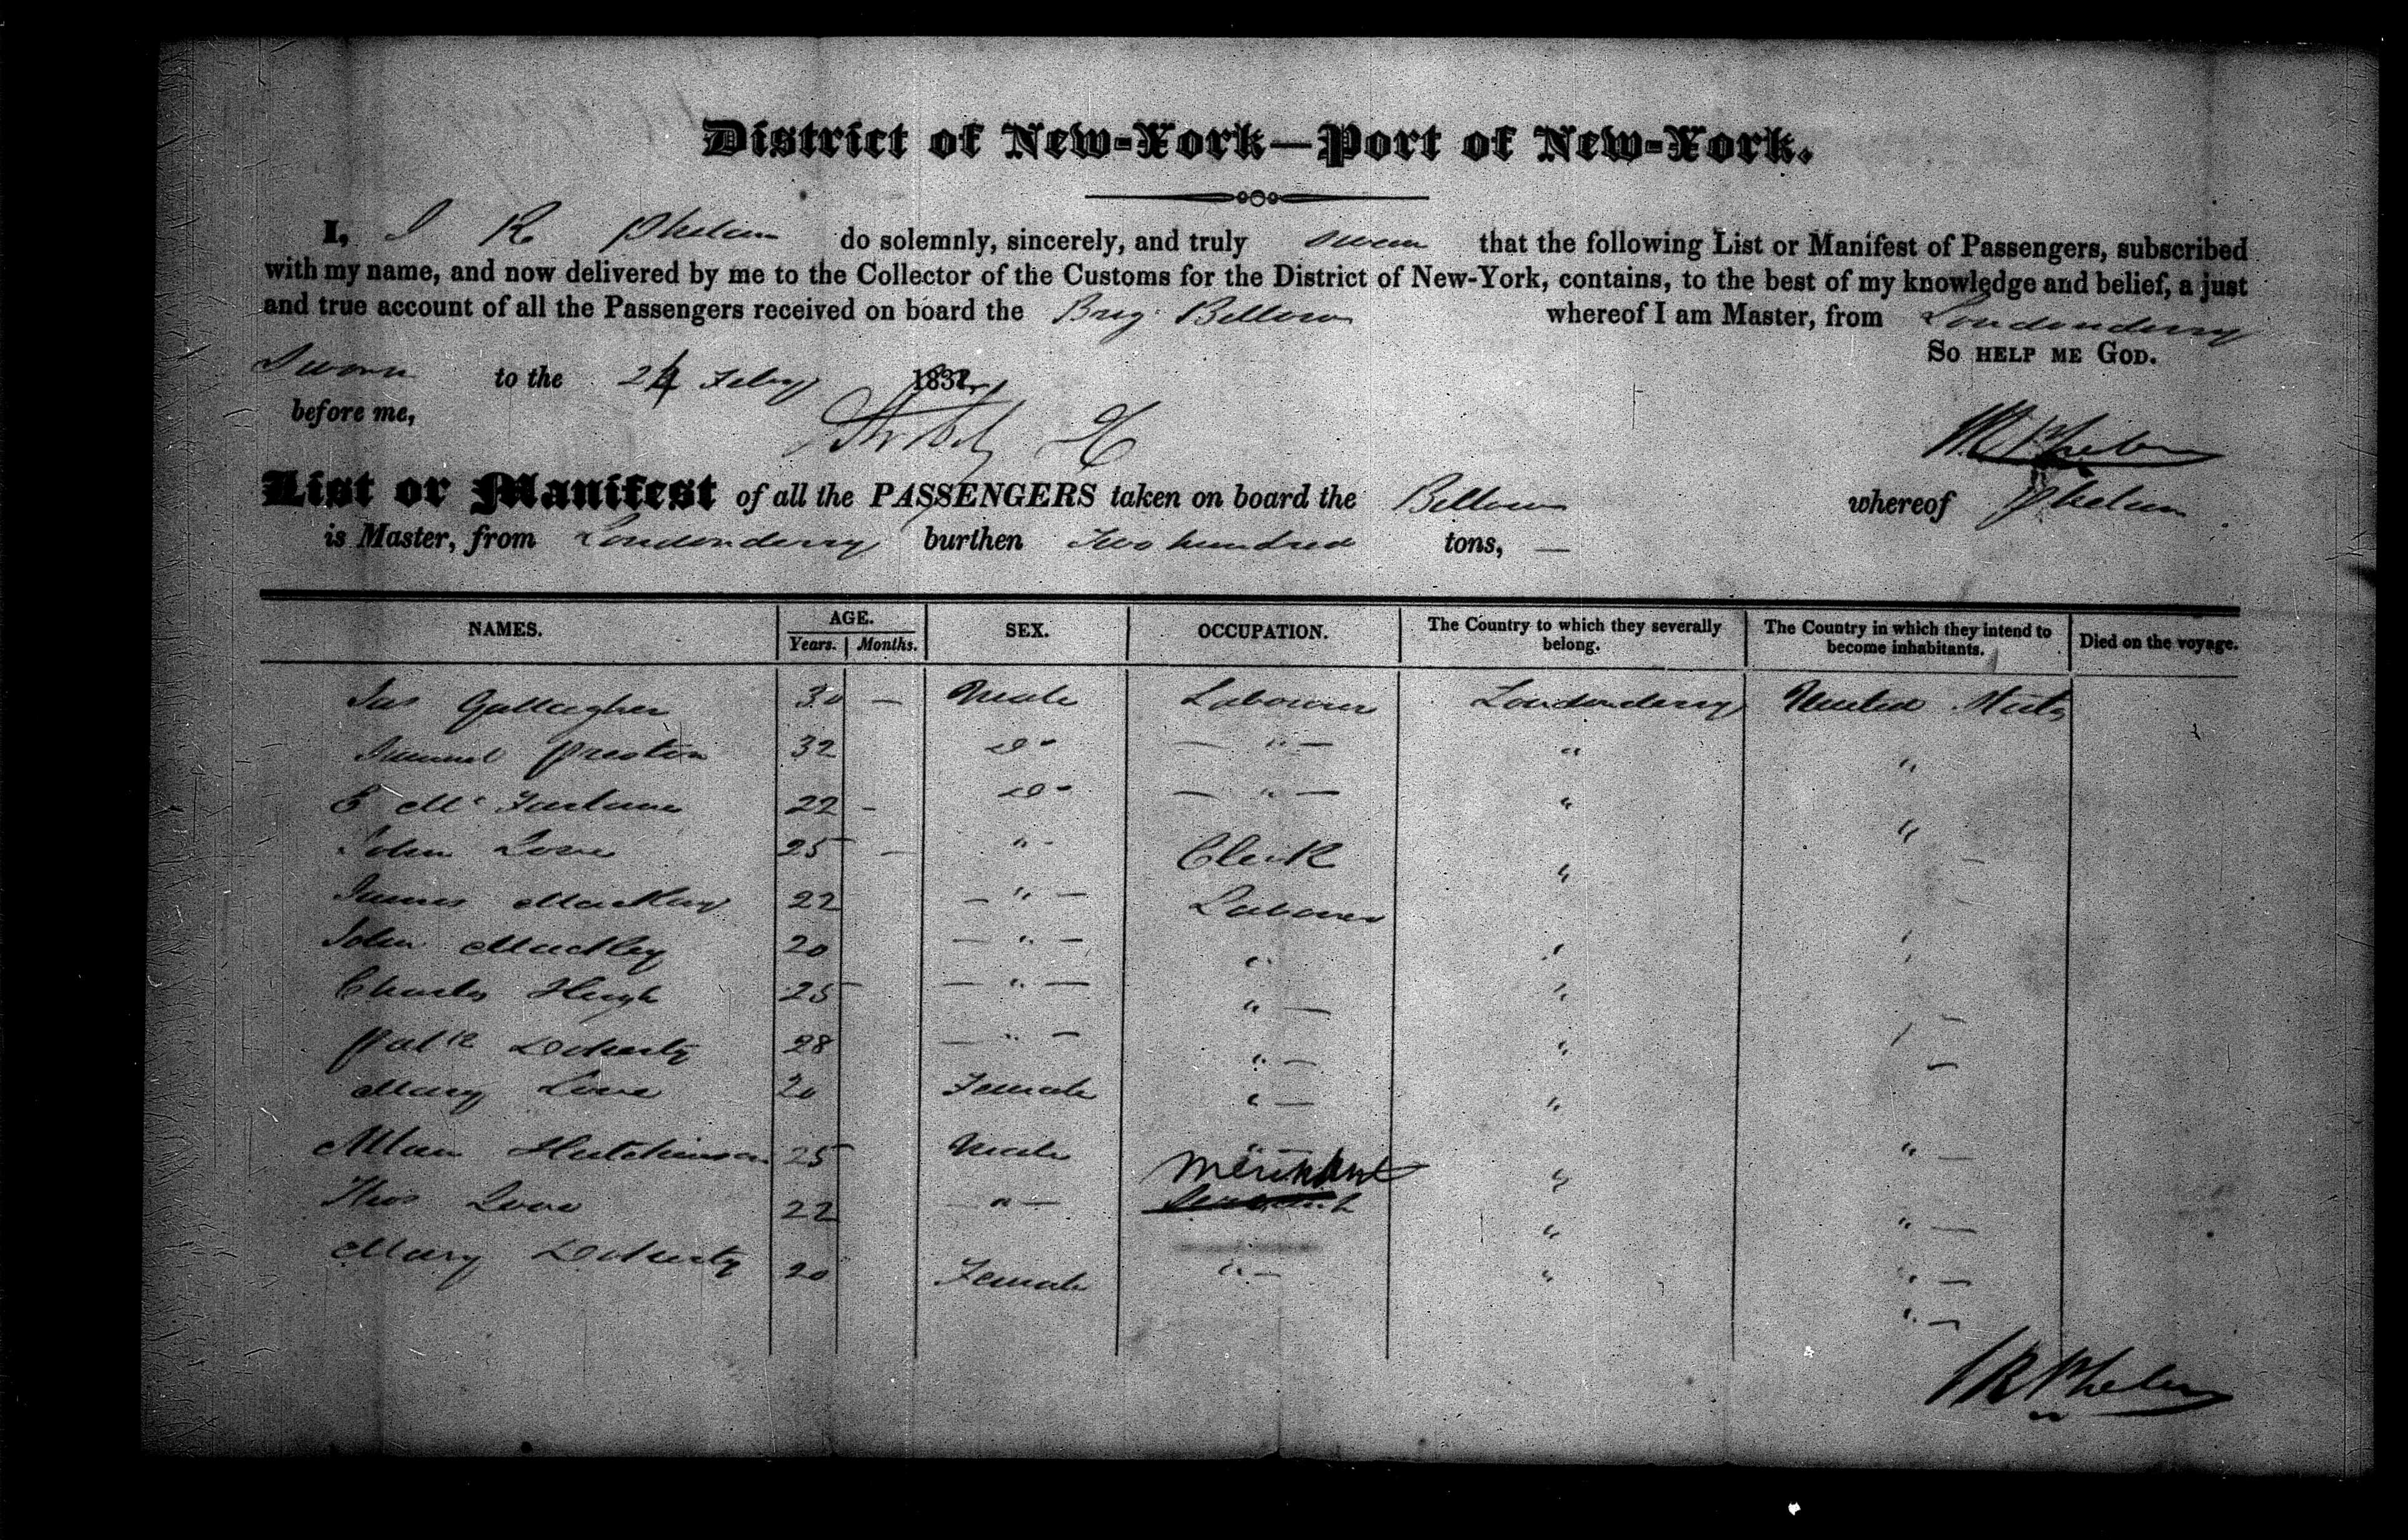 District of New-York—Port of New-York.
I, J R Phelan do solemnly, sincerely, and truly swear that the following List or Manifest of Passengers, subscribed
with my name, and now delivered by me to the Collector of the Customs for the District of New-York, contains, to the best of my knowledge and belief, a just
and true account of all the Passengers received on board the Brig Bellona whereof I am Master, from Londonderry
So HELP ME GOD.
Sworn to the 24 Feby 183
before me,
Phelan
List or Manifest of all the PASSENGERS taken on board the Bellona whereof Phelan
is Master, from Londonderry burthen Two hundred tons, —
NAMES. AGE. Years. Months. SEX. OCCUPATION. The Country to which they severally belong. The Country in which they intend to become inhabitants. Died on the voyage.
Jas Gallagher 30 — Male Labourer Londonderry United States
Samuel Preston 32 do — " — " "
Mc 22 - do — " — " "
John Love 25 — " - Clerk "
James Mackley 22 — " — Labourer
John Mackley 20 — " — " "
Charles Hugh 25 — " — " — " —
Patk Doherty 28 — " — " — " —
Mary Love 20 Female " — "
Allan Hutchinson 25 Male Merchant " " —
Thos Love 22 — " — " " —
Mary Doherty 20 Female " — " " —
" —
J R Phelan